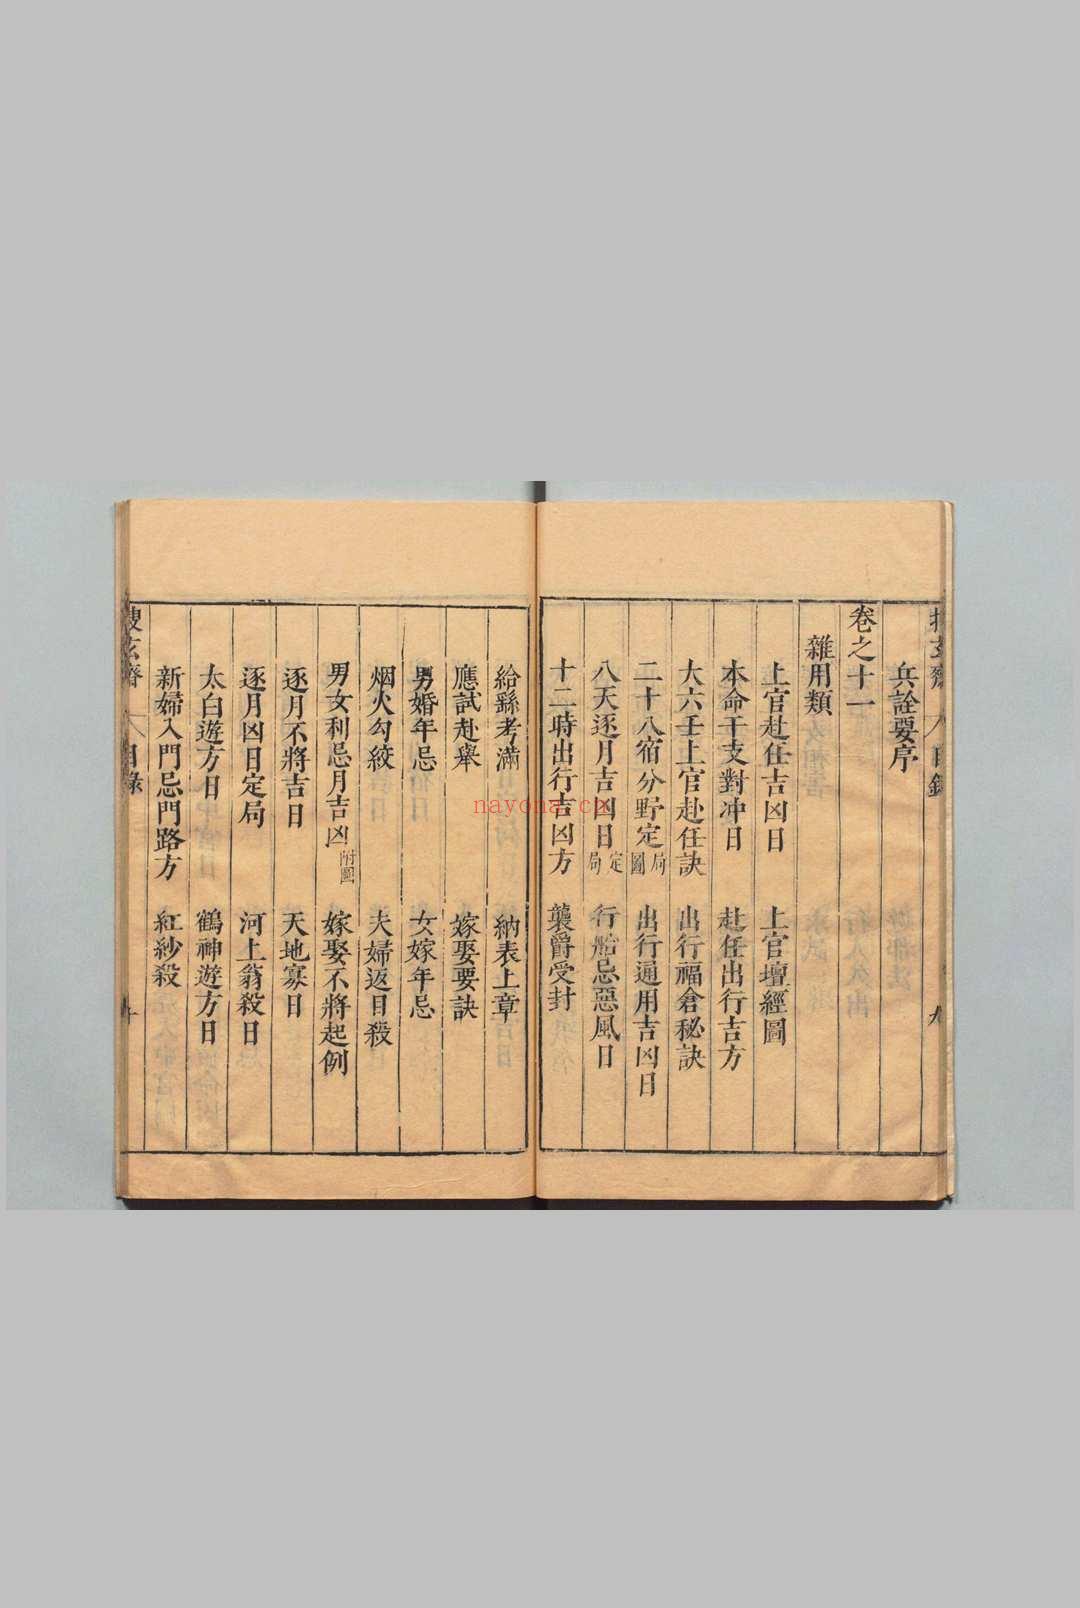 兵詮要序
卷之十一
雜用類
上官赴任吉凶日 上官壇經圖
本命干支對冲日 赴任出行吉方
大六壬上官赴任訣 出行福倉秘訣
二十八宿分野定局圖 出行通用吉凶日
八天逐月吉凶日定局 行船忌惡風日
十二時出行吉凶方 襲爵受封
給繇考滿 納表上章
應試赴舉 嫁娶要訣
男婚年忌 女嫁年忌
烟火勾絞 夫婦返目殺
男女利忌月吉凶附圖 嫁娶不將起例
逐月不將吉日 天地寡日
逐月凶日定局 河上翁殺日
太白遊方日 鶴神遊方日
新婦入門忌門路方 紅紗殺
玄齋 目錄 十
nayona.cn